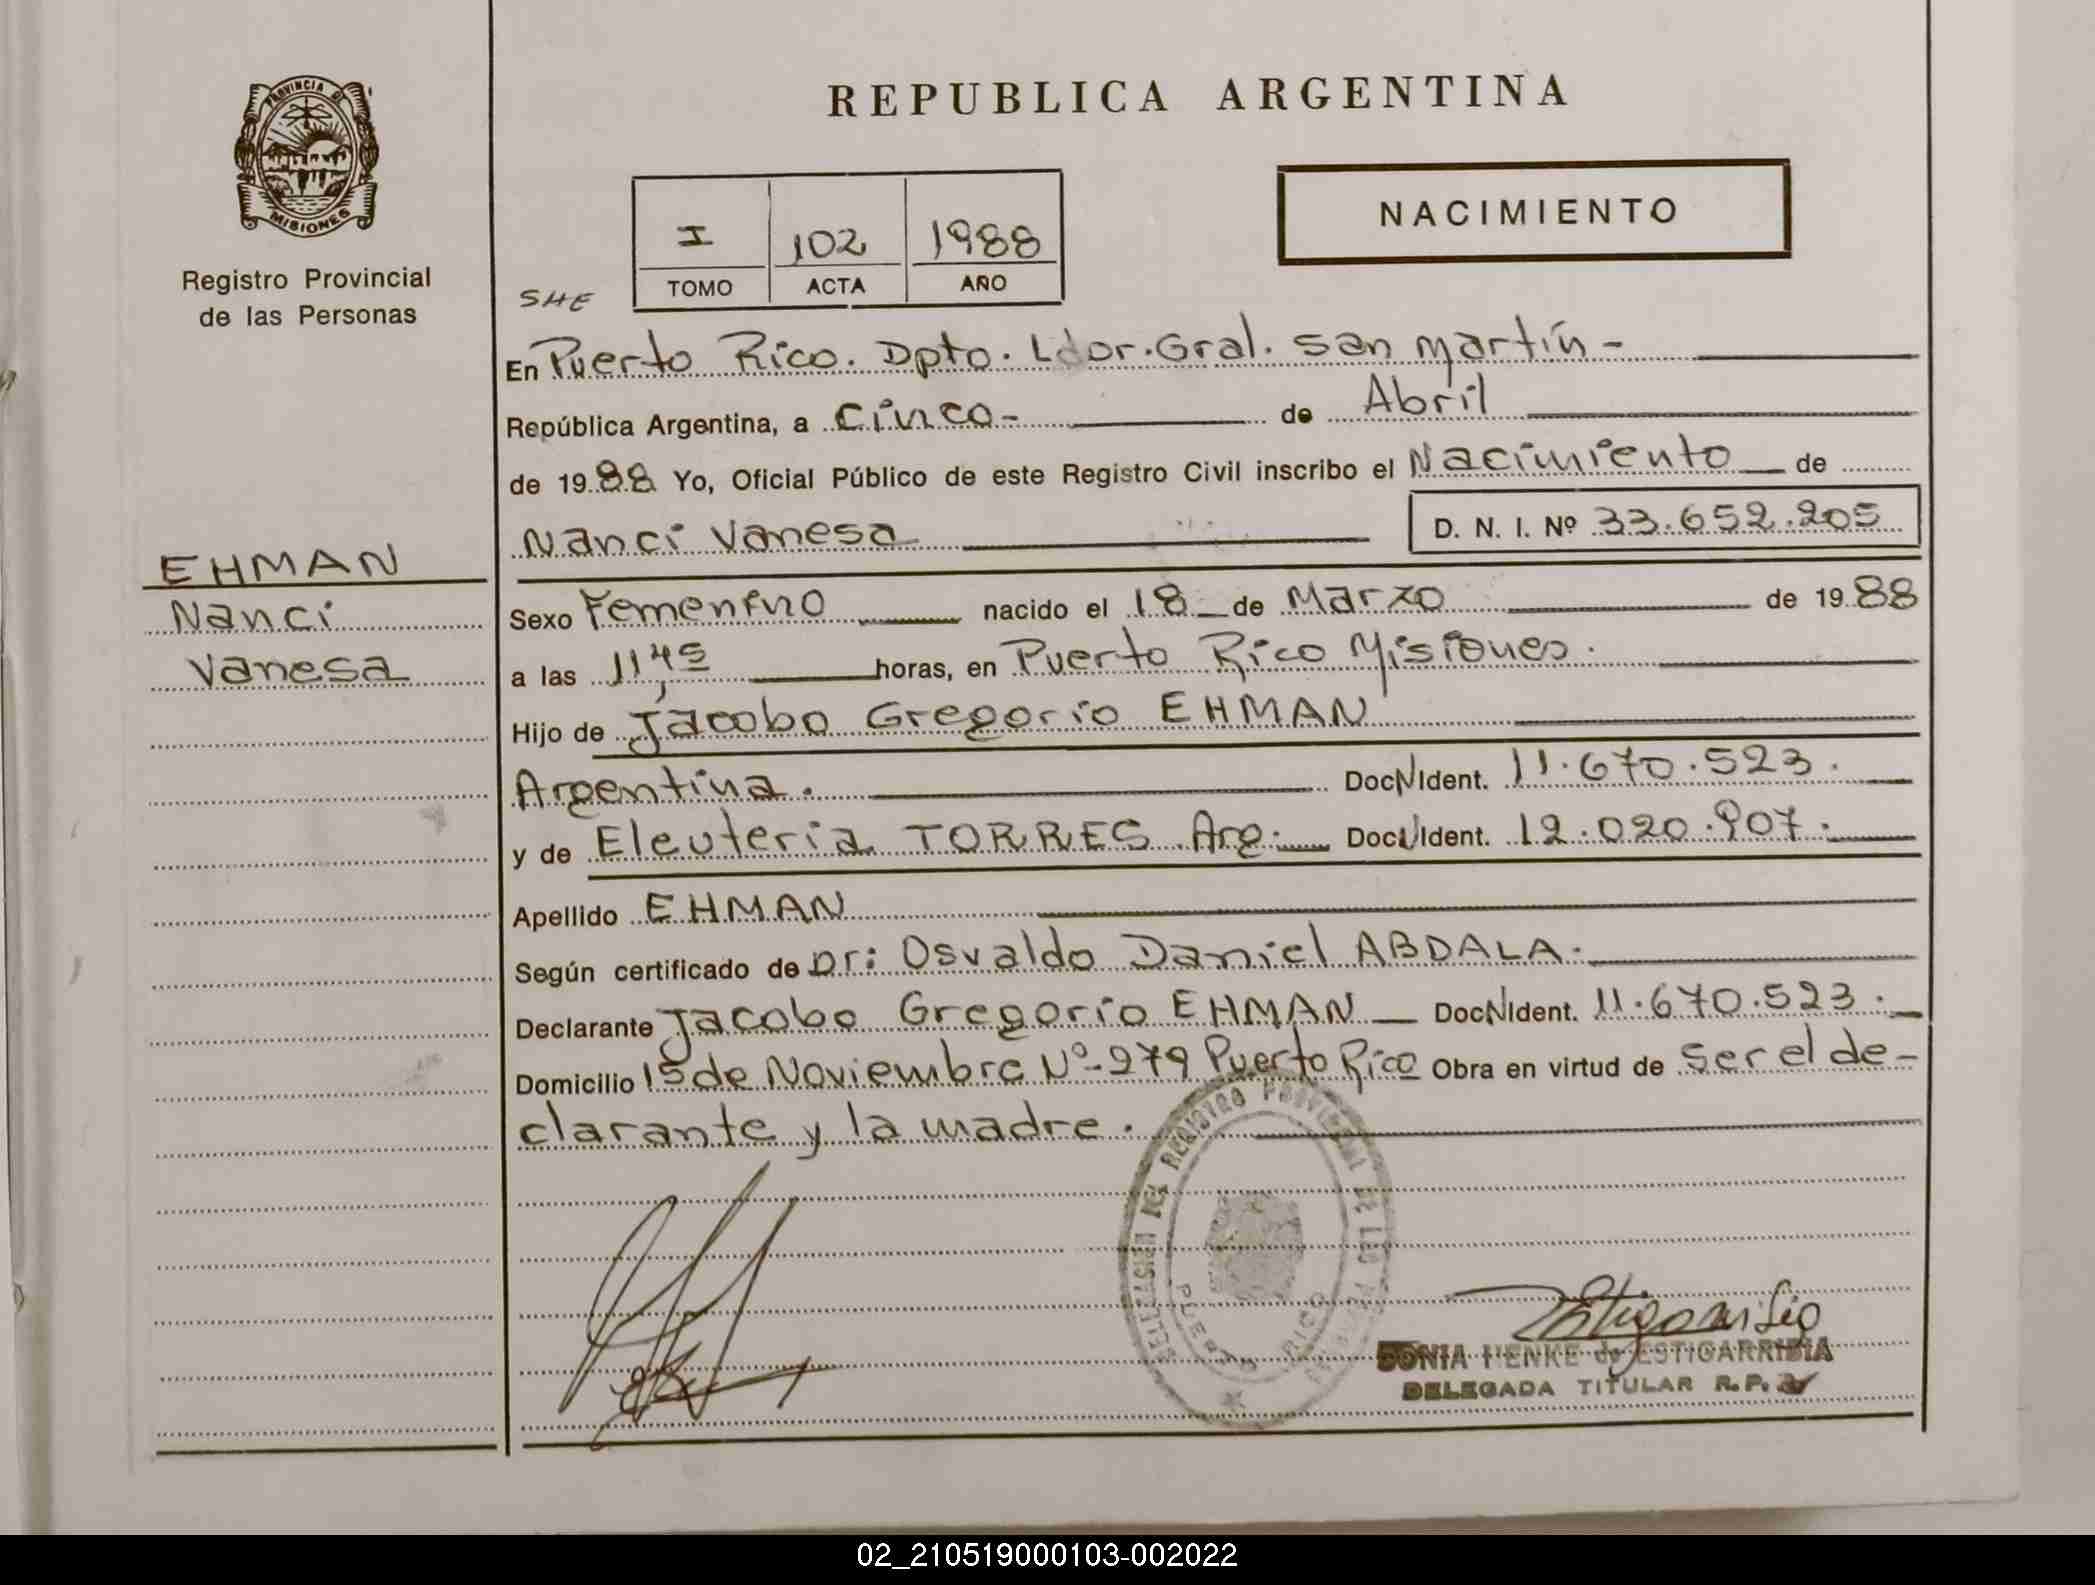 PROVINCIA DE
MISIONES
Registro Provincial
de las Personas
REPUBLICA ARGENTINA
NACIMIENTO
I 102 1988
TOMO ACTA AÑO
SHE
En Puerto Rico. Dpto. Ldor. Gral. San Martín -
República Argentina, a Cinco - de Abril
de 1988 Yo, Oficial Público de este Registro Civil inscribo el Nacimiento de
Nanci Vanesa D. N. I. Nº 33.652.205
EHMAN
Nanci
Vanesa
Sexo Femenino nacido el 18 de Marzo de 1988
a las 11,45 horas, en Puerto Rico Misiones.
Hijo de Jacobo Gregorio EHMAN
Argentina. Doc N Ident. 11.670.523.
y de Eleuteria TORRES Arg. Doc U Ident. 12.020.907.
Apellido EHMAN
Según certificado de Dr: Osvaldo Daniel ABDALA.
Declarante Jacobo Gregorio EHMAN Doc N Ident. 11.670.523.
Domicilio 15 de Noviembre Nº-279 Puerto Rico Obra en virtud de ser el de-
clarante y la madre.
DELEGACION DEL REGISTRO PROVINCIAL DE LAS PERSONAS
PUERTO RICO
SONIA HENKE de ESTIGARRIBIA
DELEGADA TITULAR R.P.
02_210519000103-002022